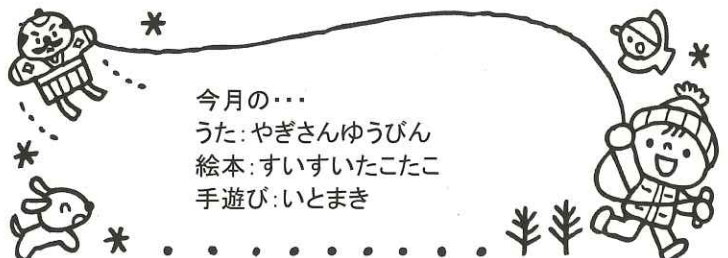 今月の・・・
うた:やぎさんゆうびん
絵本:すいすいたこたこ
手遊び:いとまき